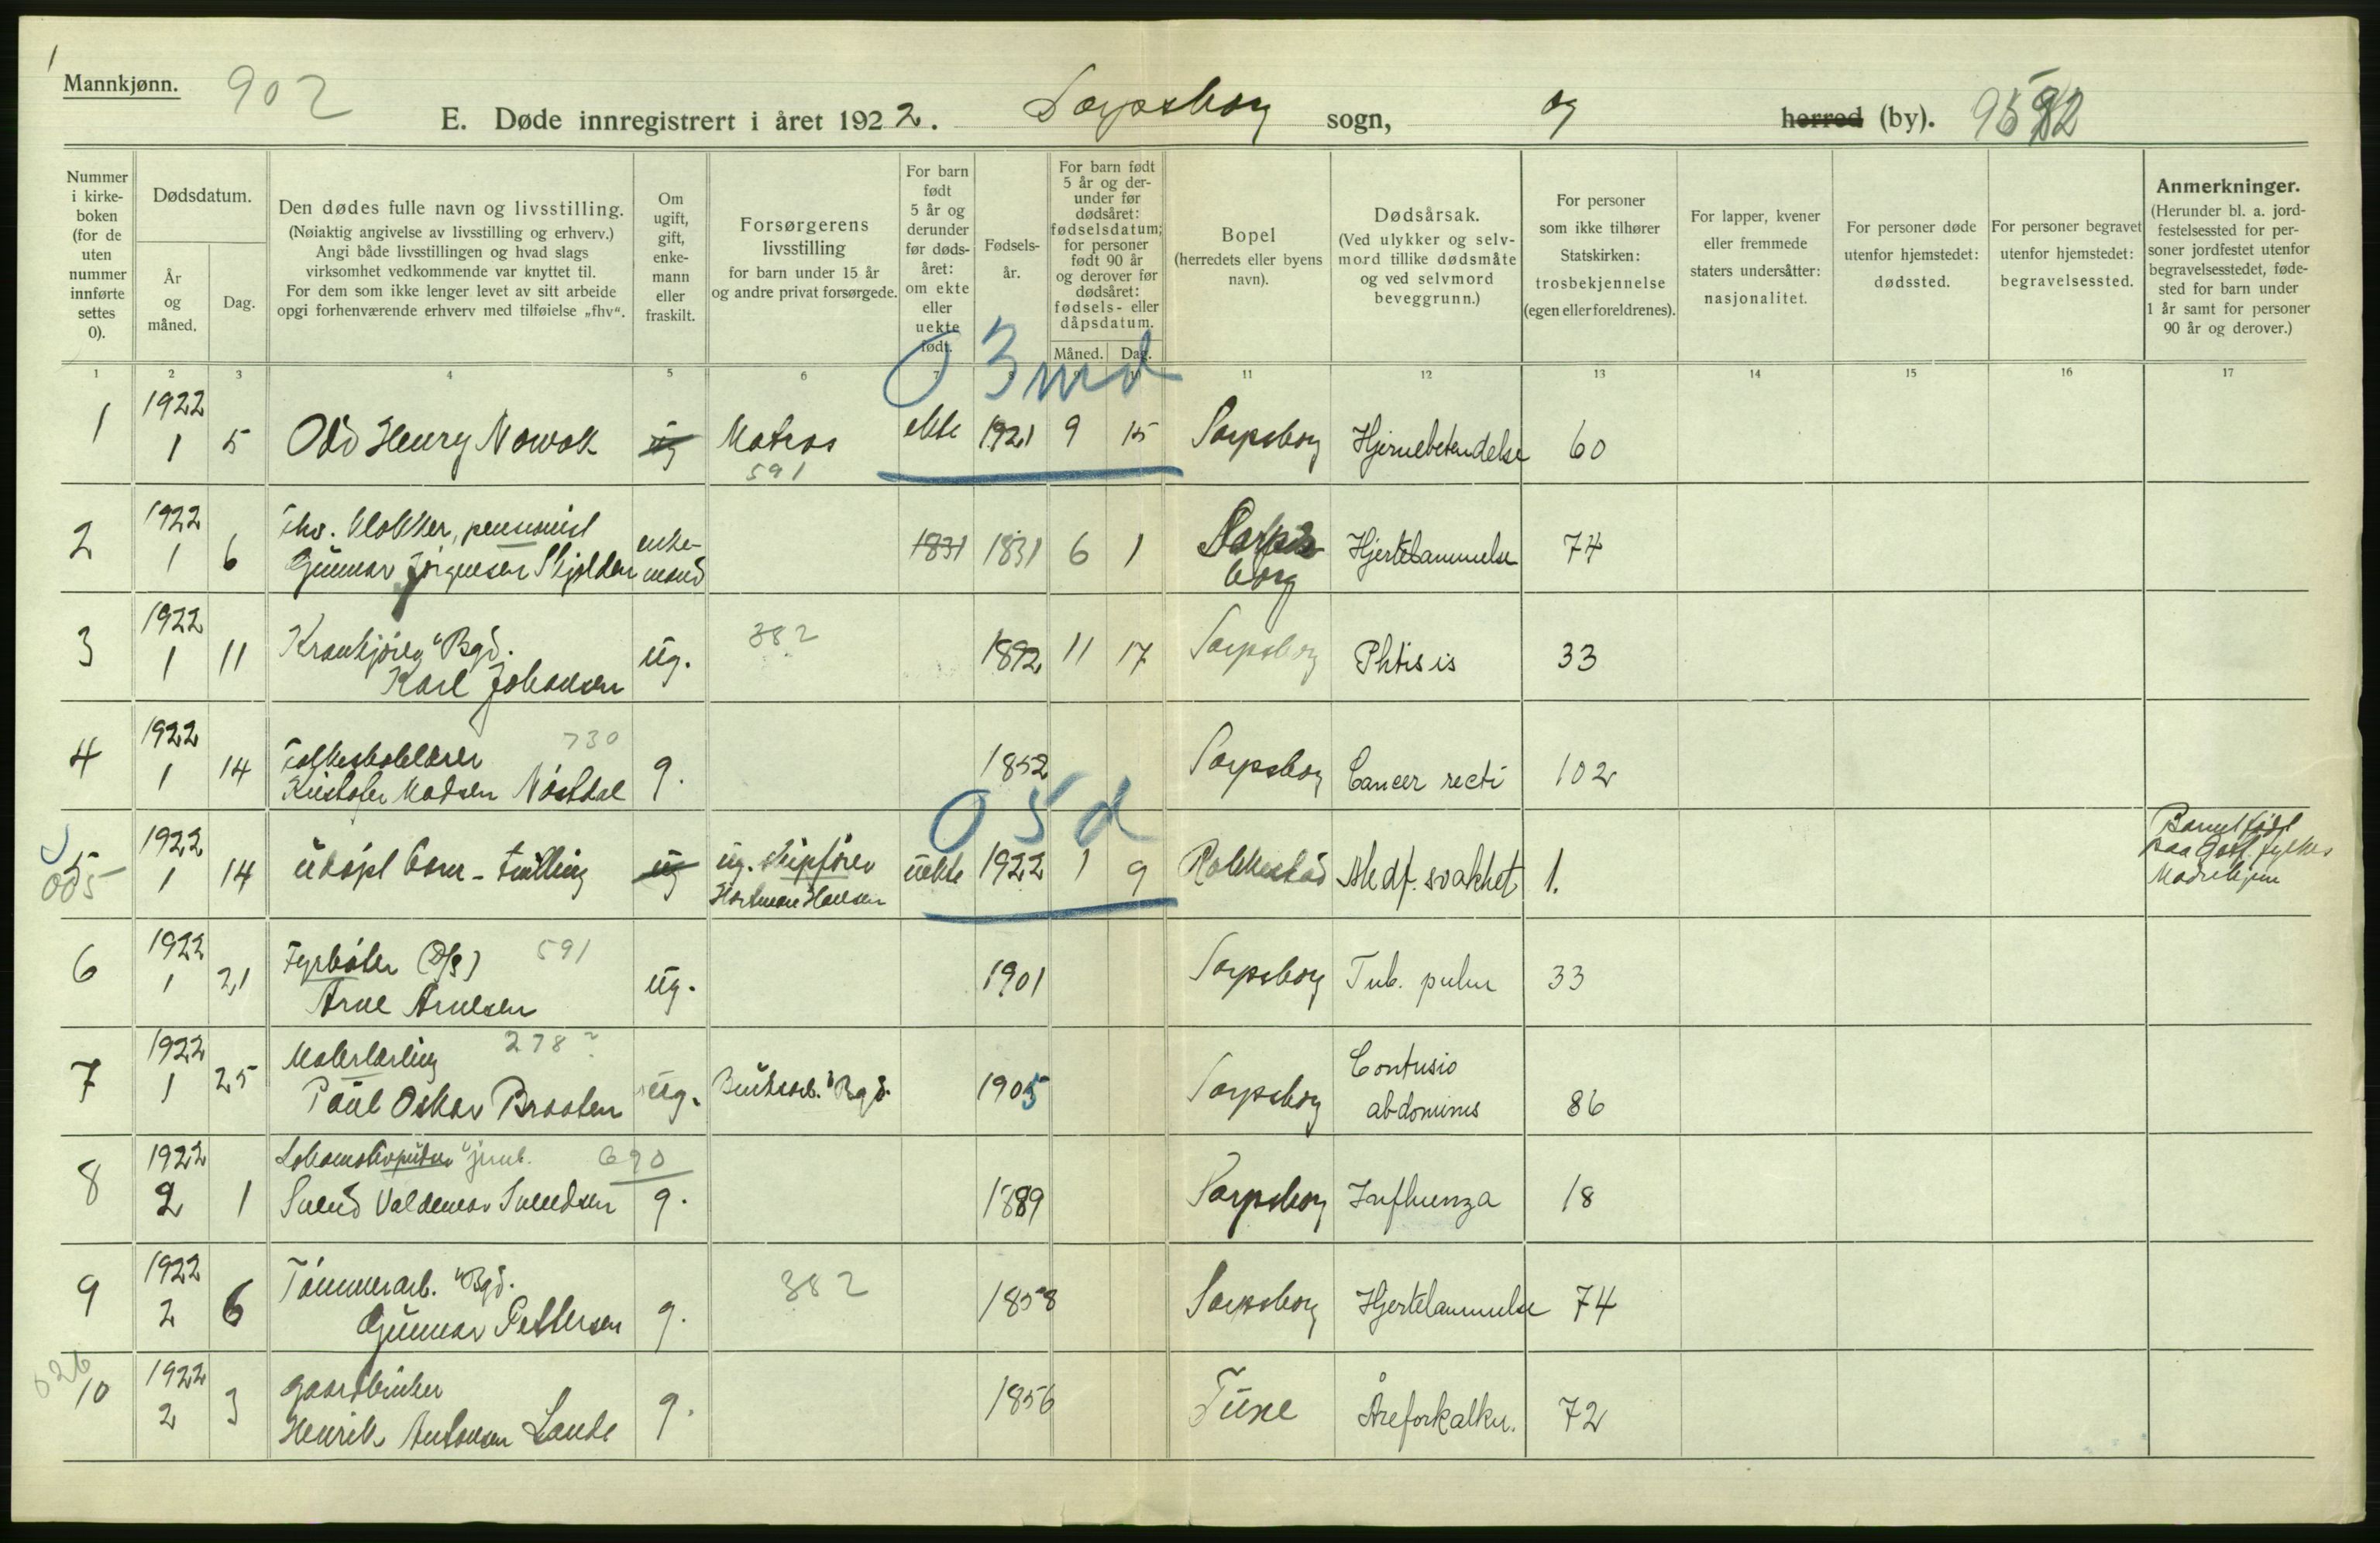 Mannkjønn.
902
E. Døde innregistrert i året 1922. Sarpsborg sogn, og herred (by).
Nummer i kirkeboken (for de uten nummer innførte settes 0).
Dødsdatum.
År og måned.
Dag.
Den dødes fulle navn og livsstilling.
(Nøiaktig angivelse av livsstilling og erhverv.)
Angi både livsstillingen og hvad slags
virksomhet vedkommende var knyttet til.
For dem som ikke lenger levet av sitt arbeide
opgi forhenværende erhverv med tilføielse „fhv“.
Om ugift, gift, enkemann eller fraskilt.
Forsørgerens
livsstilling
for barn under 15 år
og andre privat forsørgede.
For barn født 5 år og derunder før dødsåret: om ekte eller uekte født.
Fødselsår.
For barn født 5 år og derunder før dødsåret: fødselsdatum; for personer født 90 år og derover før dødsåret: fødsels- eller dåpsdatum.
Måned. Dag.
Bopel
(herredets eller byens
navn).
Dødsårsak.
(Ved ulykker og selvmord tillike dødsmåte
og ved selvmord
beveggrunn.)
For personer
som ikke tilhører
Statskirken:
trosbekjennelse
(egen eller foreldrenes).
For lapper, kvener
eller fremmede
staters undersåtter:
nasjonalitet.
For personer døde
utenfor hjemstedet:
dødssted.
For personer begravet
utenfor hjemstedet:
begravelsessted.
Anmerkninger.
(Herunder bl. a. jordfestelsessted for personer jordfestet utenfor
begravelsesstedet, fødested for barn under
1 år samt for personer
90 år og derover.)
1 2 3 4 5 6 7 8 9 10 11 12 13 14 15 16 17
0 3 md
1 1922 1 5 Odd Henry Nowak ug Matros 591 ekte 1921 9 15 Sarpsborg Hjernebetendelse 60
2 1922 1 6 Fhv. klokker, pensionist
Gunnar Jörgensen Skjolden enkemand 1831 1831 6 1 Sarpsborg Hjertelammelse 74
3 1922 1 11 Krankjörer "Bgd.
Karl Johansen ug. 382 1892 11 17 Sarpsborg Phtisis 33
4 1922 1 14 Folkeskolelærer 730
Kristofer Madsen Nöstdal g. 1852 Sarpsborg Cancer recti 102
0 5 d
5 1922 1 14 udöpt barn - tvilling ug ug. skipförer
Hartman Hansen uekte 1922 1 9 Rakkestad Medf. svakhet 1.
Barnet födt
paa Østf. fylkes
Mødrehjem
6 1922 1 21 Fyrböter (D/S) 591
Arne Arnesen ug. 1901 Sarpsborg Tub. pulm 33
7 1922 1 25 Malerlærling 278?
Paul Oskar Braaten ug. Bruksarb. "Bgd. 1905 Sarpsborg Contusio
abdominis 86
8 1922 2 1 Lokomotivpudser "jernb. 690
Svend Valdemar Svendsen g. 1889 Sarpsborg Influenza 18
9 1922 2 6 Tömmerarb. "Bgd.
Gunnar Pettersen g. 382 1858 Sarpsborg Hjertelammelse 74
026
10 1922 2 3 Gaardbruker
Henrik Antonsen Lande g. 1856 Tune Åreforkalkn. 72